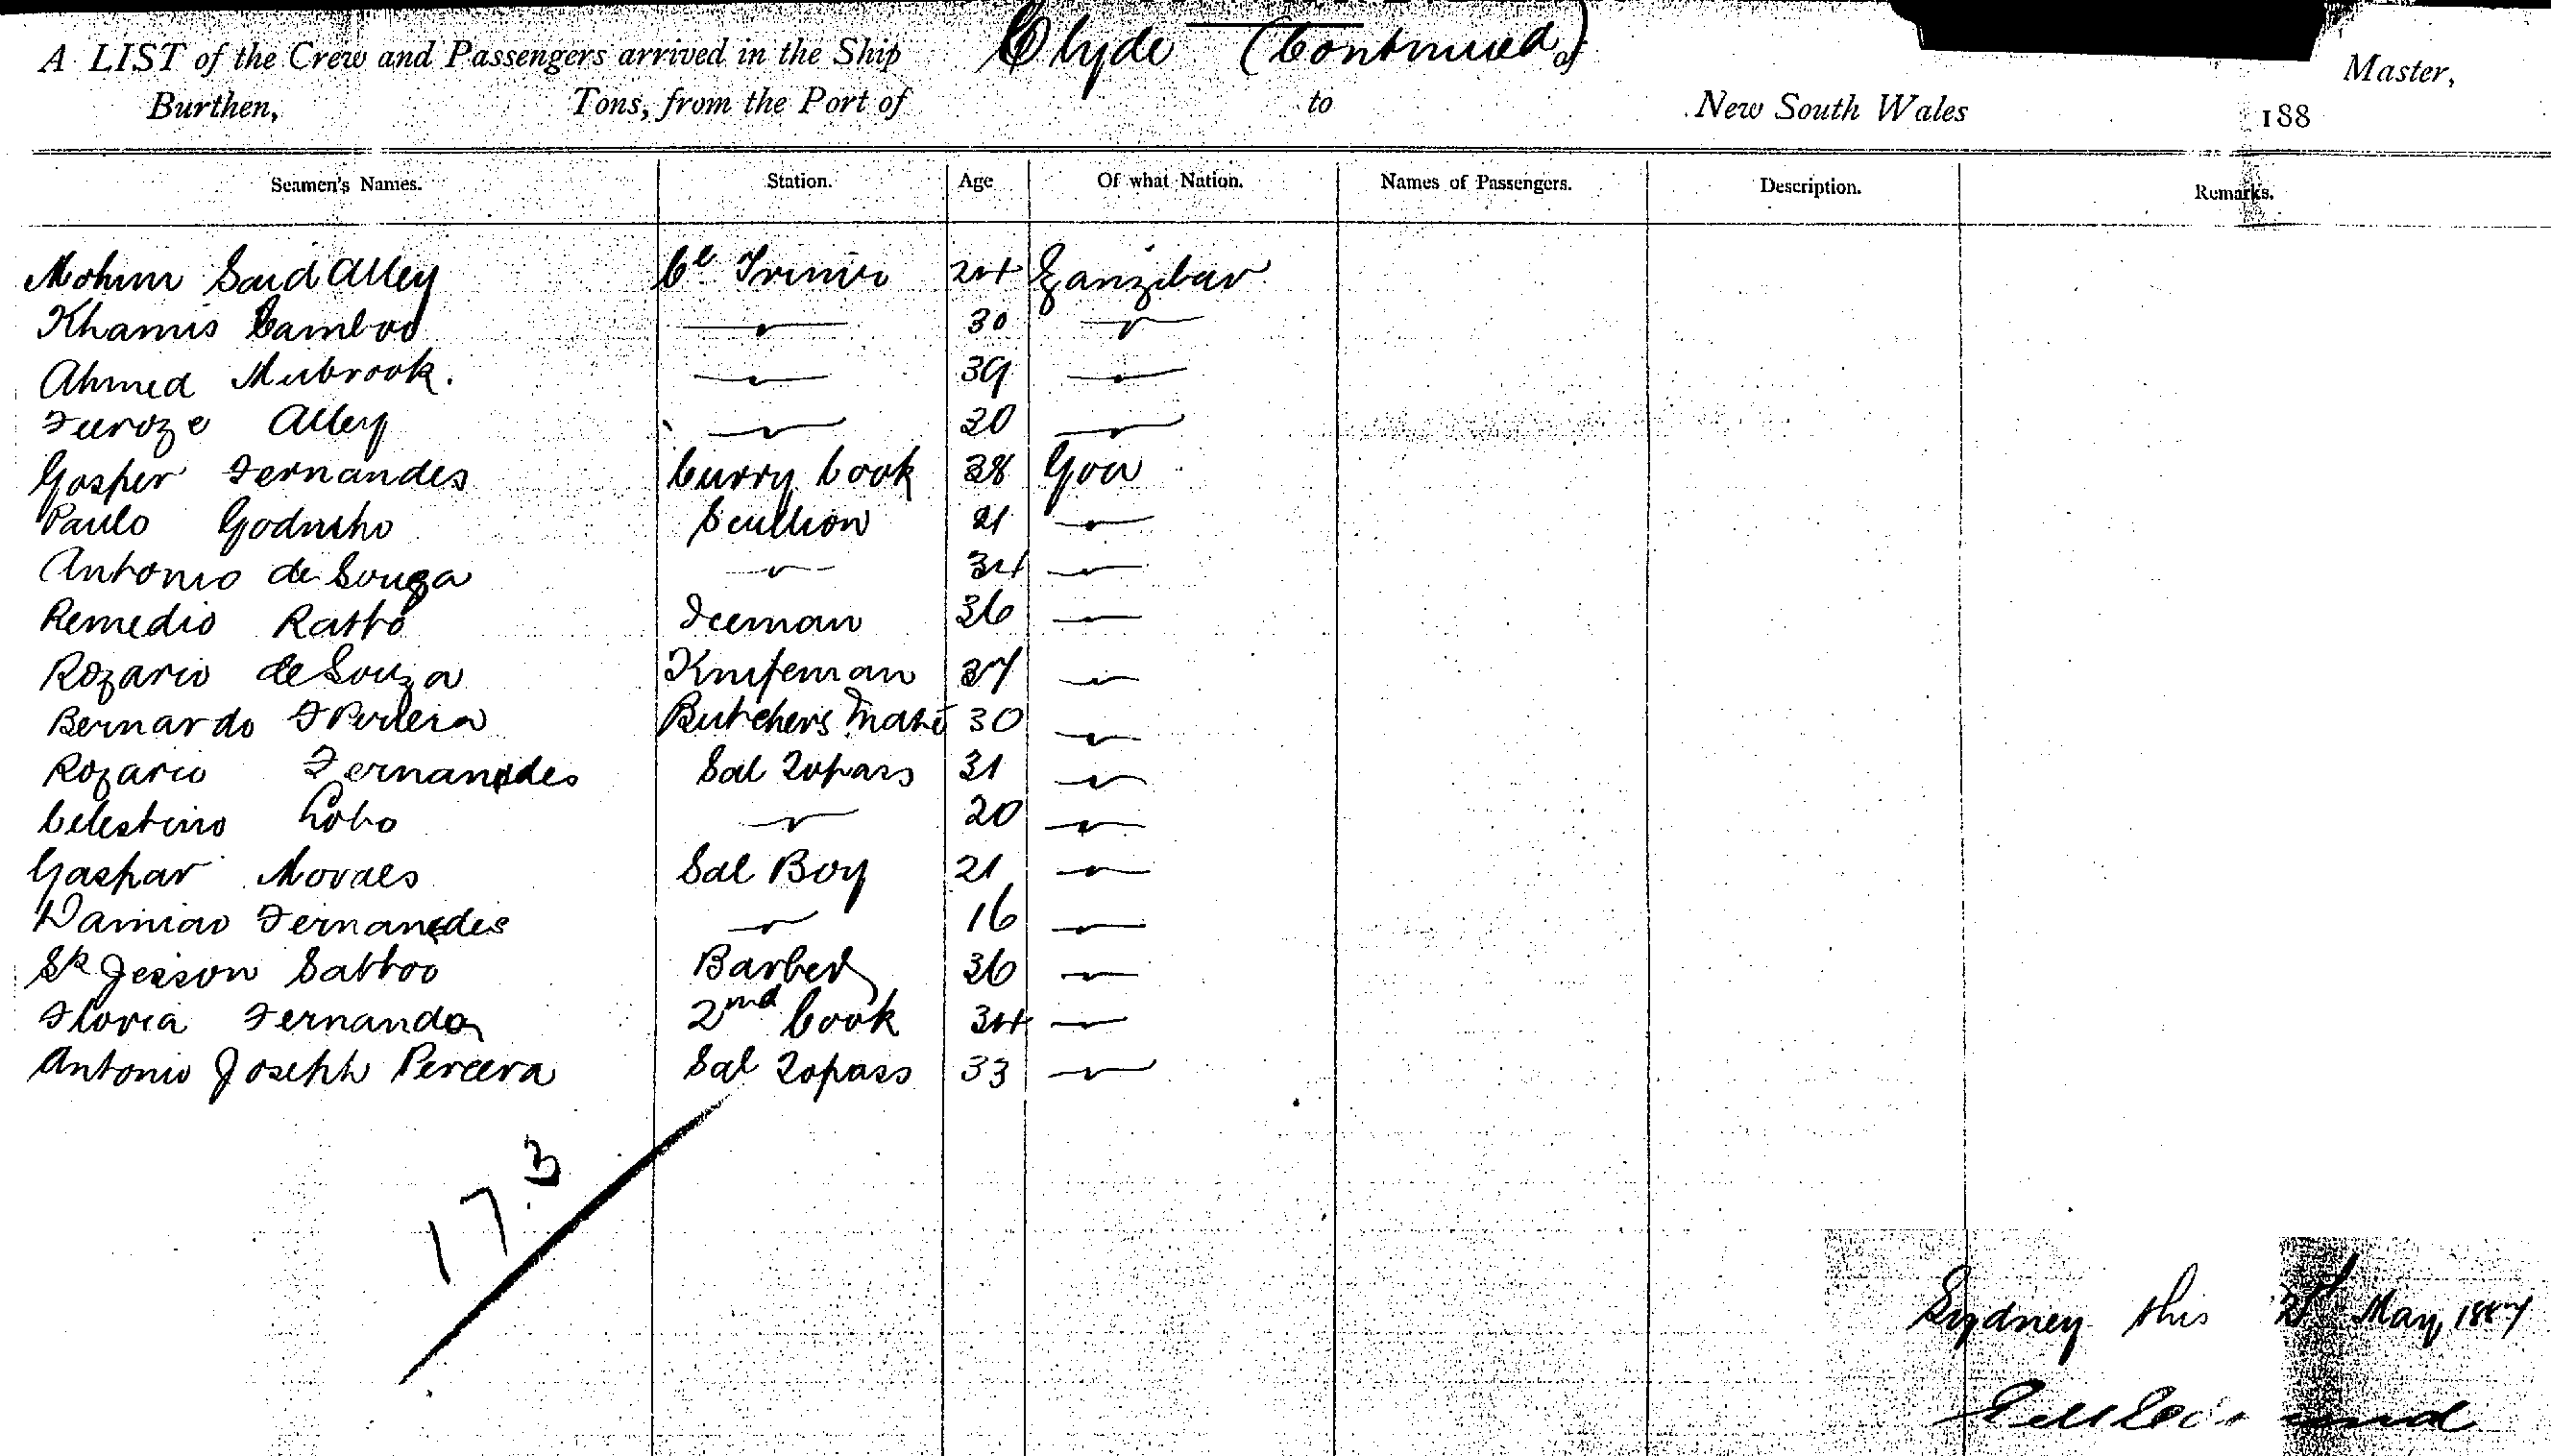 A LIST of the Crew and Passengers arrived in the Ship Clyde (Continued) of Master,
Burthen, Tons, from the Port of to New South Wales 188
Seamen's Names. Station. Age Of what Nation. Names of Passengers. Description. Remarks.
Mohim Said Alley Cl Trimir 24 Zanzibar
Khamis Camboo 30
Ahmed Mubrook. 39
Feeroze Alley 20
Gosper Fernandes Curry Cook 38 Goa
Paulo Godinho Scullion 21
Antonio de Souza 34
Remedio Ratto Iceman 36
Rozario de Souza Knifeman 37
Bernardo F Pereira Butchers Mate 30
Rozario Fernandes Sal Topass 31
Celestino Lobo 20
Gaspar Moraes Sal Boy 21
Damiao Fernandes 16
Sk Jesson Sattoo Barber 36
Floria Fernandes 2nd Cook 34
Antonio Joseph Pereera Sal Topass 33
173
Sydney this May 1887